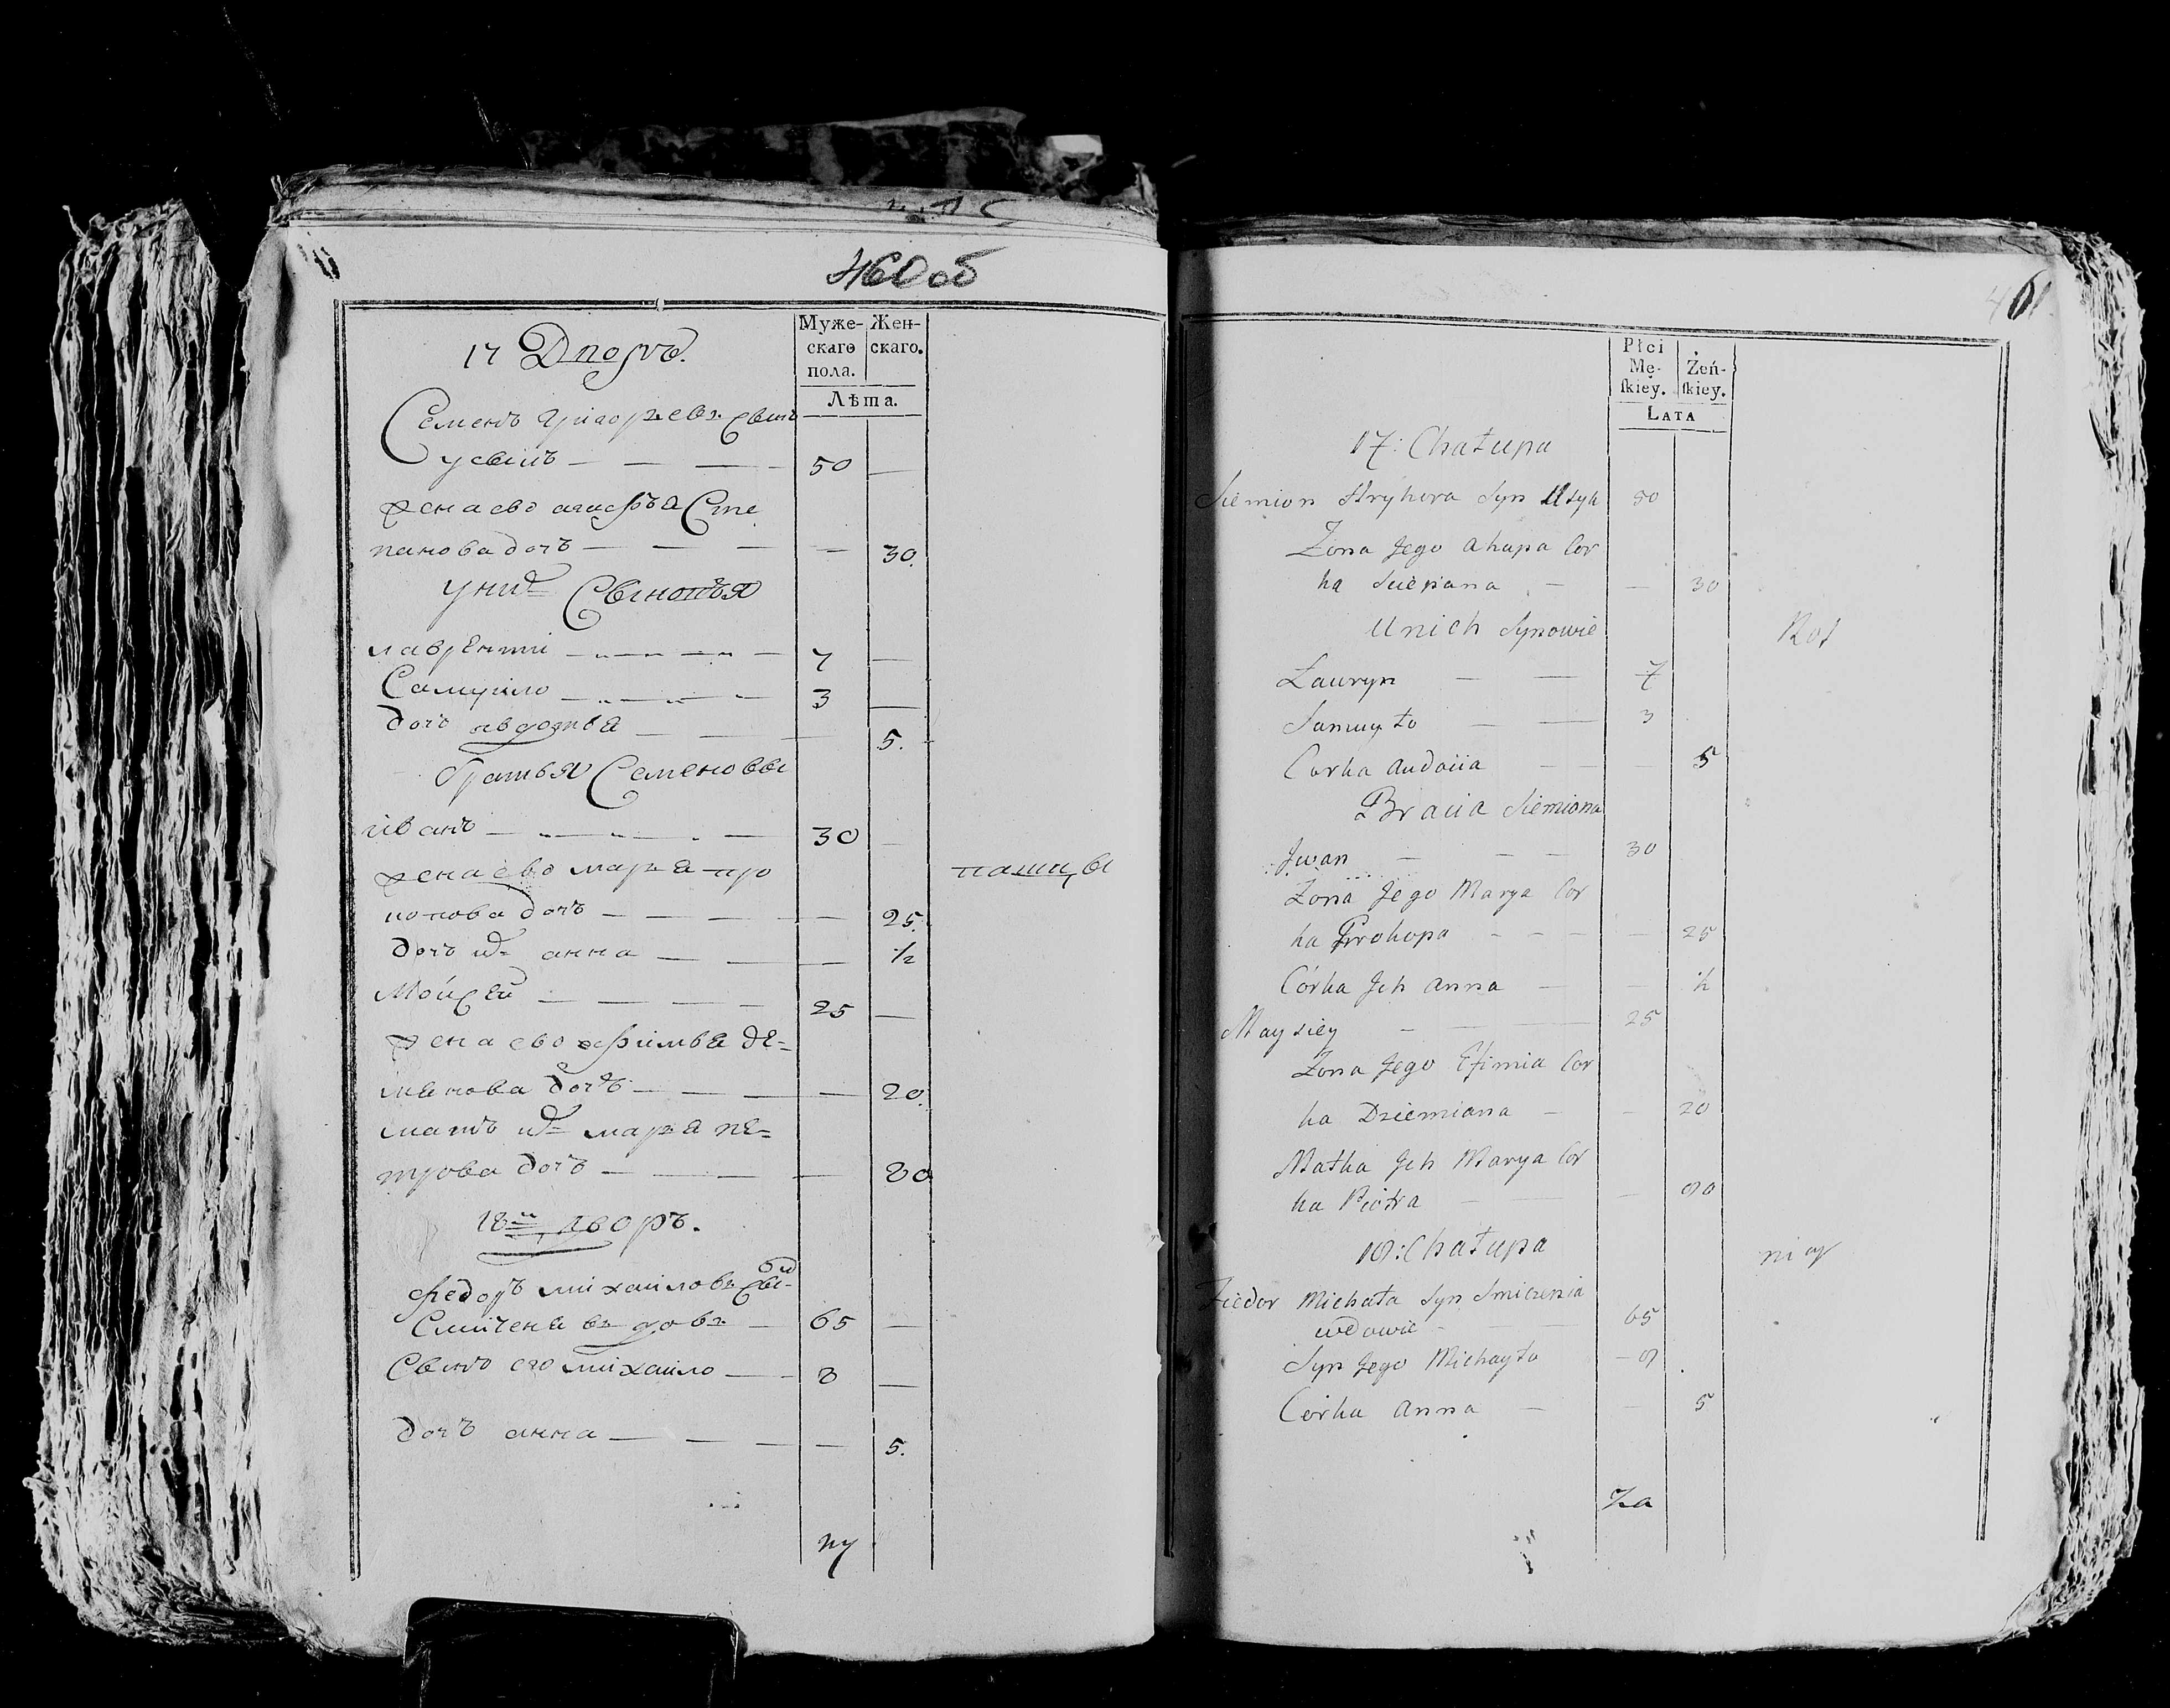 460 об
Муже- Жен-
скаго скаго.
пола.
Лѣта.
17 Дворъ.
Семенъ григорьевъ сынъ
усыкъ — — — 50 —
жена ево агафья Сте
панова дочь — — — — 30.
у нихъ Сыновья
лаврентїи — — — 7 —
Самуило — — — 3 —
дочь авдотья — — 5.
братья Семеновы
иванъ — — — 30 —
жена ево марья про
копова дочь — — — — 25.
дочь ихъ анна — — — 1/2
Мойсей — — — — 25 —
жена ево ефимья де-
мянова дочь — — — — 20.
мать ихъ марья пе-
трова дочь — — — 80
пашцы
18й дворъ.
федоръ михайловъ сы-
Смиченя вдовъ — 65 —
Сынъ его михайло — 8 —
дочь анна — — — — 5.
461.
Płci
Mę- Żeń-
skiey. skiey.
Lata
17: Chałupa
Siemion Hryhora Syn Usyk 50
Żona Jego Ahapa Cor
ka Sciepana — — 30
U nich Synowie
Ławryn — — 7
Samuyło — — 3
Corka Audocia — — — 5
Bracia Siemiona
Jwan — — — 30
Żona Jego Marya Cor
ka Prokopa — — — — 25
Córka Jch Anna — — 1/2
Maysiey — — — 25
Żona Jego Efimia Cor
ka Dziemiana — — 20
Matka Jch Marya Cor
ka Piotra — — — 80
18: Chałupa
Fiedor Michała Syn Smiczenia
wdowie — — 65
Syn Jego Michayło — 8
Córka Anna — — 5